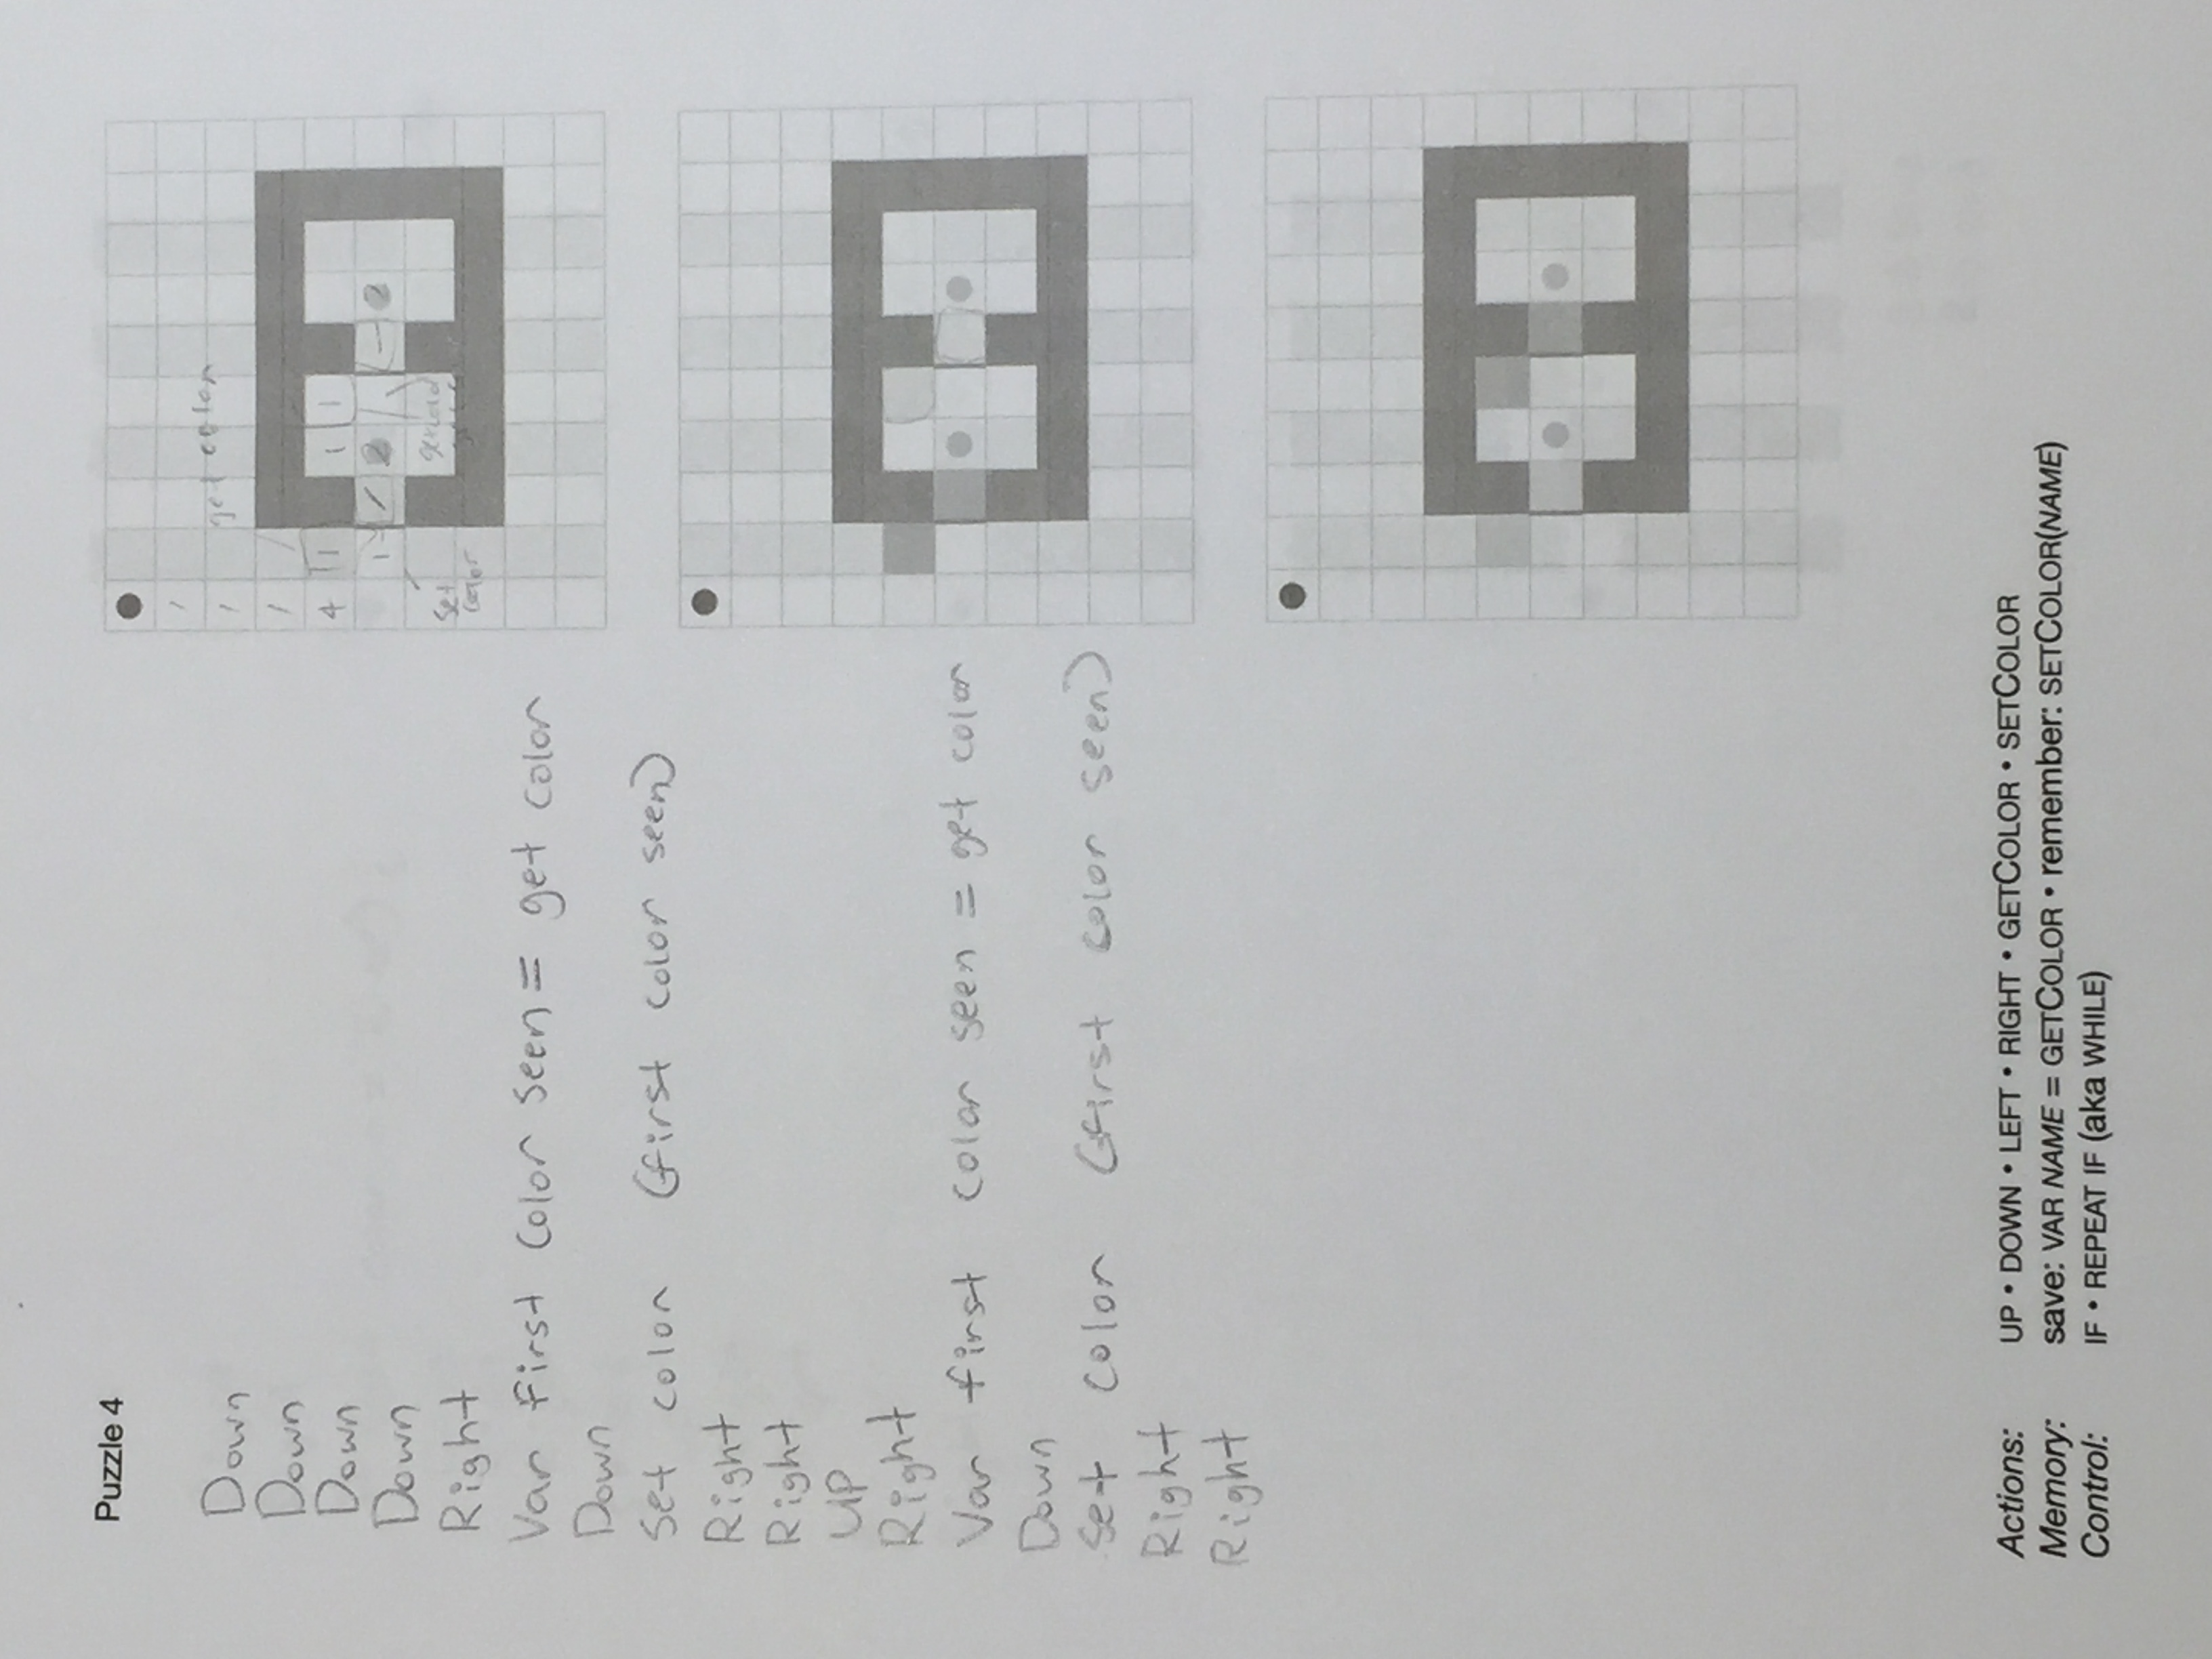 Puzzle 4
Down
Down
Down
Down
Right
Var first color seen = get color
Down
Set color (first color seen)
Right
Right
UP
Right
Var first color seen = get color
Down
Set color (first color seen)
Right
Right
get color
1
1
1
4 1 1 1
1 2 2
set
color
Actions: UP • DOWN • LEFT • RIGHT • GETCOLOR • SETCOLOR
Memory: save: VAR NAME = GETCOLOR • remember: SETCOLOR(NAME)
Control: IF • REPEAT IF (aka WHILE)